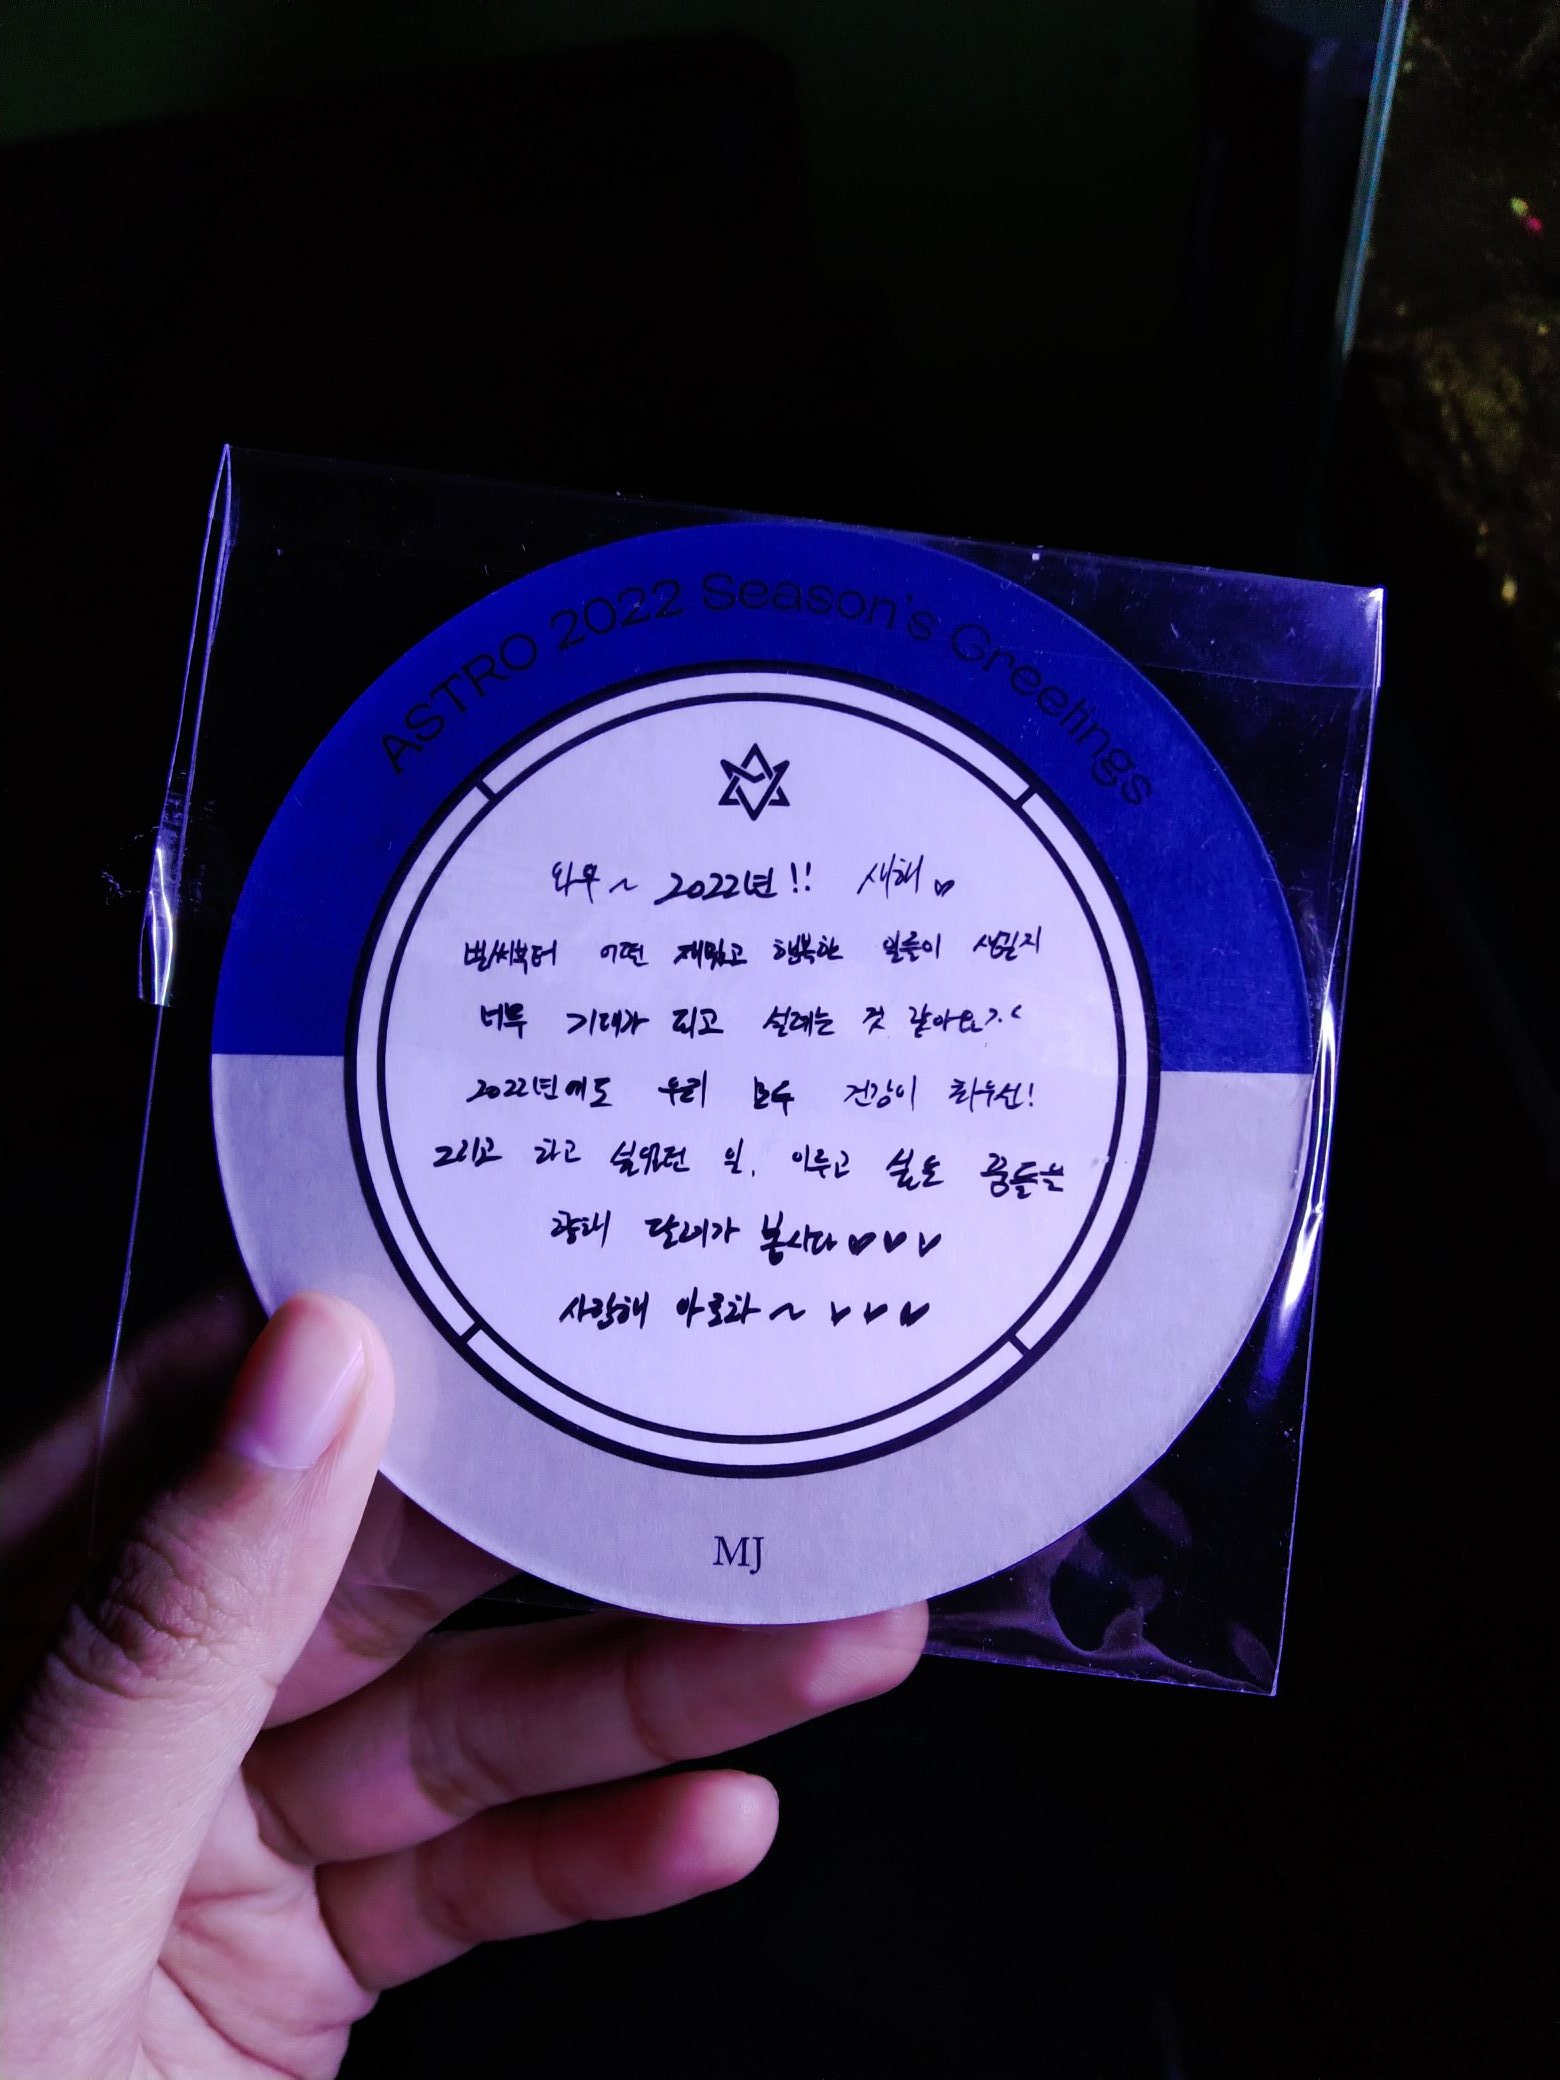 ASTRO 2022 Season's Greetings
와우~ 2022년!! 새해♥
벌써부터 어떤 재밌고 행복한 일들이 생길지
너무 기대가 되고 설레는 것 같아요>.<
2022년에도 우리 모두 건강이 최우선!
그리고 하고 싶었던 일, 이루고 싶은 꿈들을
향해 달려가 봅시다♥♥♥
사랑해 아로하~ ♥♥♥
MJ